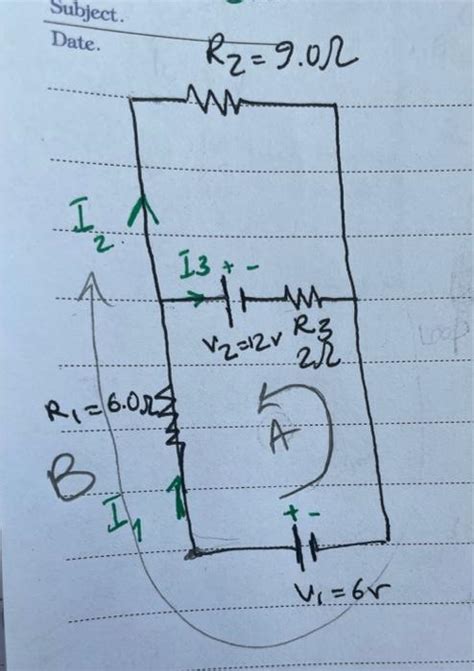 Subject.
Date.
R₂=9.0Ω
I₂
I3 + -
V₂=12v
R₃
2Ω
R₁=6.0Ω
A
B
I₁
+ -
V₁=6v